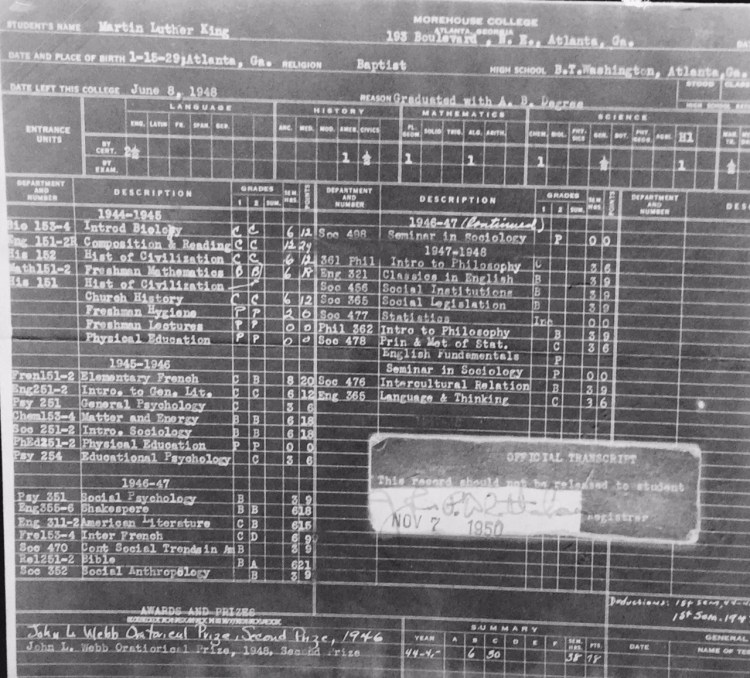 MOREHOUSE COLLEGE
ATLANTA, GEORGIA
STUDENT'S NAME Martin Luther King 193 Boulevard, N. E., Atlanta, Ga.
DATE AND PLACE OF BIRTH 1-15-29; Atlanta, Ga. RELIGION Baptist HIGH SCHOOL B.T.Washington, Atlanta, Ga.
DATE LEFT THIS COLLEGE June 8, 1948 REASON Graduated with A. B. Degree
LANGUAGE HISTORY MATHEMATICS SCIENCE
ENG. LATIN FR. SPAN. GER. ANC. MED. MOD. AMER. CIVICS PL. GEOM. SOLID TRIG. ALG. ARITH. CHEM. BIOL. PHYSICS GEN. BOT. PHY. GEOG. H1
ENTRANCE UNITS
BY CERT. 2½ 1 ½ 1 1 1 ½ 1 ½
BY EXAM.
DEPARTMENT AND NUMBER DESCRIPTION GRADES 1 2 SUM. SEM. HRS. POINTS DEPARTMENT AND NUMBER DESCRIPTION GRADES 1 2 SUM. SEM. HRS. POINTS DEPARTMENT AND NUMBER
1944-1945
Bio 153-4 Introd Biology C C 6 12
Eng 151-2R Composition & Reading C C 12 24
His 152 Hist of Civilization C C 6 12
Math151-2 Freshman Mathematics B B 6 18
His 151 Hist of Civilization
Church History C C 6 12
Freshman Hygiene P P 2 0
Freshman Lectures P P 0 0
Physical Education P P 0 0
1945-1946
Fren151-2 Elementary French C B 8 20
Eng251-2 Intro. to Gen. Lit. C C 6 12
Psy 251 General Psychology C 3 6
Chem153-4 Matter and Energy B B 6 18
Soc 251-2 Intro. Sociology B B 6 18
PhEd251-2 Physical Education P P 0 0
Psy 254 Educational Psychology C 3 6
1946-47
Psy 351 Social Psychology B 3 9
Eng355-6 Shakespere B B 6 18
Eng 311-2 American Literature C B 6 15
Fre153-4 Inter French C D 6 9
Soc 470 Cont Social Trends in Am B 3 9
Rel251-2 Bible B A 6 21
Soc 352 Social Anthropology B 3 9
1946-47 (Continued)
Soc 498 Seminar in Sociology P 0 0
1947-1948
361 Phil Intro to Philosophy C 3 6
Eng 321 Classics in English B 3 9
Soc 456 Social Institutions B 3 9
Soc 365 Social Legislation B 3 9
Soc 477 Statistics Inc 0 0
Phil 362 Intro to Philosophy B 3 9
Soc 478 Prin & Met of Stat. C 3 6
English Fundamentals P
Seminar in Sociology P 0 0
Soc 476 Intercultural Relation B 3 9
Eng 365 Language & Thinking C 3 6
OFFICIAL TRANSCRIPT
This record should not be released to student
Registrar
NOV 7 1950
Deductions: 1st Sem, 44-
1st Sem. 194
AWARDS AND PRIZES
John L. Webb Oratorical Prize, Second Prize, 1946
John L. Webb Oratiorical Prize, 1948, Second Prize
SUMMARY
YEAR A B C D E F SEM. HRS. PTS.
6 30 38 78
GENERAL
DATE NAME OF TES